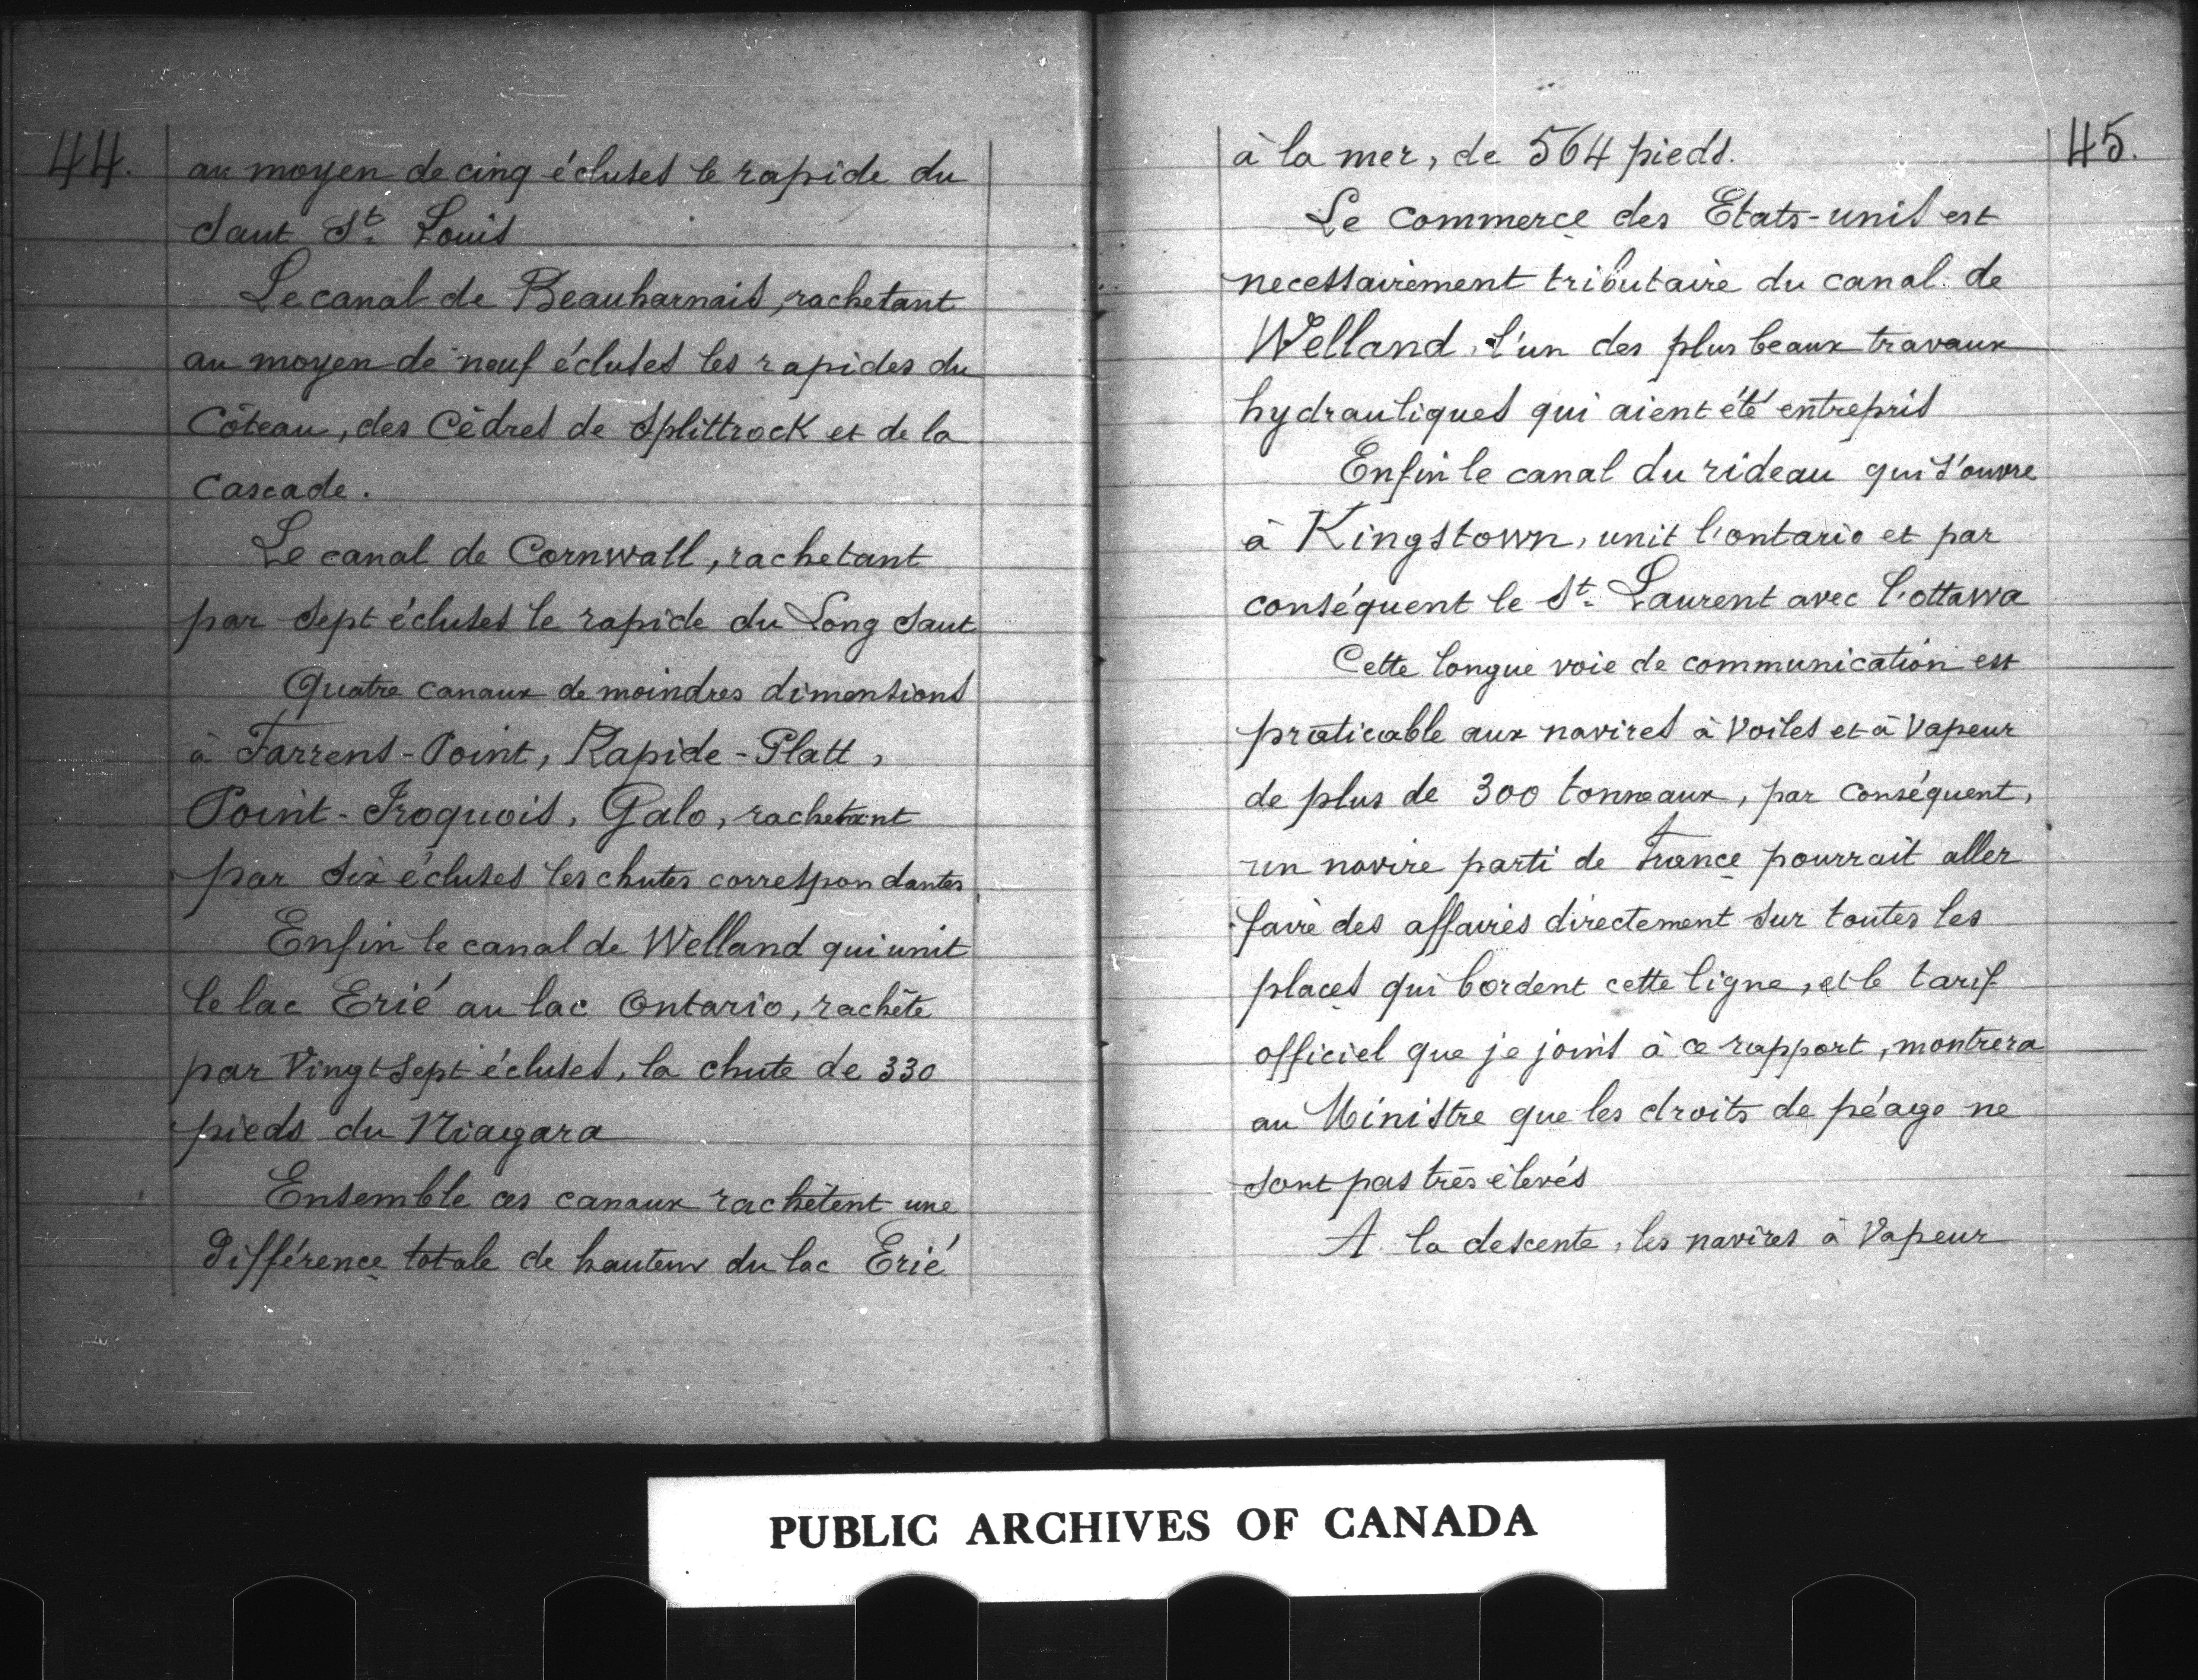 44.
au moyen de cinq écluses le rapide du
Saut St. Louis
Le canal de Beauharnais, rachetant
au moyen de neuf écluses les rapides du
Côteau, des Cèdres de Splittrock et de la
Cascade.
Le canal de Cornwall, rachetant
par sept écluses le rapide du Long Saut
Quatre canaux de moindres dimensions
à Farrens-Point, Rapide-Platt,
Point-Iroquois, Galo, rachetant
par six écluses les chutes correspondantes
Enfin le canal de Welland qui unit
le lac Erié au lac Ontario, rachète
par Vingt sept écluses, la chute de 330
pieds du Niagara
Ensemble ces canaux rachètent une
différence totale de hauteur du lac Erié
45.
à la mer, de 564 pieds.
Le commerce des Etats-unis est
necessairement tributaire du canal de
Welland, l'un des plus beaux travaux
hydrauliques qui aient été entrepris
Enfin le canal du rideau qui s'ouvre
à Kingstown, unit l'ontario et par
conséquent le St. Laurent avec l'ottawa
Cette longue voie de communication est
praticable aux navires à Voiles et à Vapeur
de plus de 300 tonneaux, par conséquent,
un navire parti de France pourrait aller
faire des affaires directement sur toutes les
places qui bordent cette ligne, et le tarif
officiel que je joins à ce rapport, montrera
au Ministre que les droits de péage ne
sont pas très élevés
A la descente, les navires à Vapeur
PUBLIC ARCHIVES OF CANADA